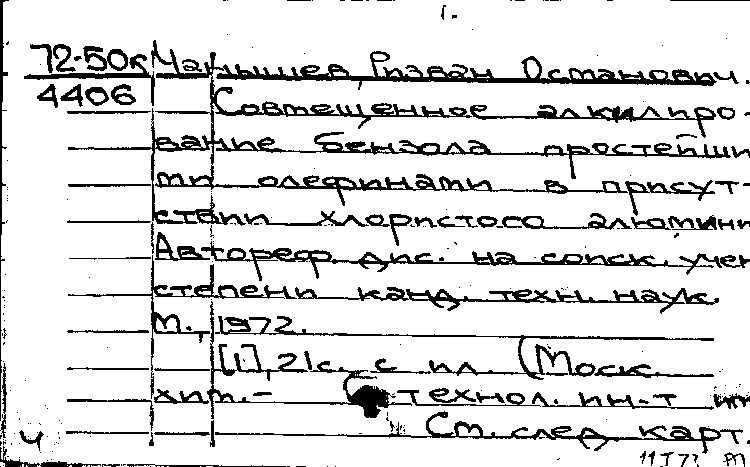 1.
72-50к Манышев, Ризван Османович.
4406 Совмещенное алкилиро-
вание бензола простейши
ми олефинами в присут-
ствии хлористого алюмини
Автореф. дис. на соиск. учен
степени канд. техн. наук.
М., 1972.
[1], 21с. с ил. (Моск.
хим.- технол. ин-т им
См. след. карт.
Ч